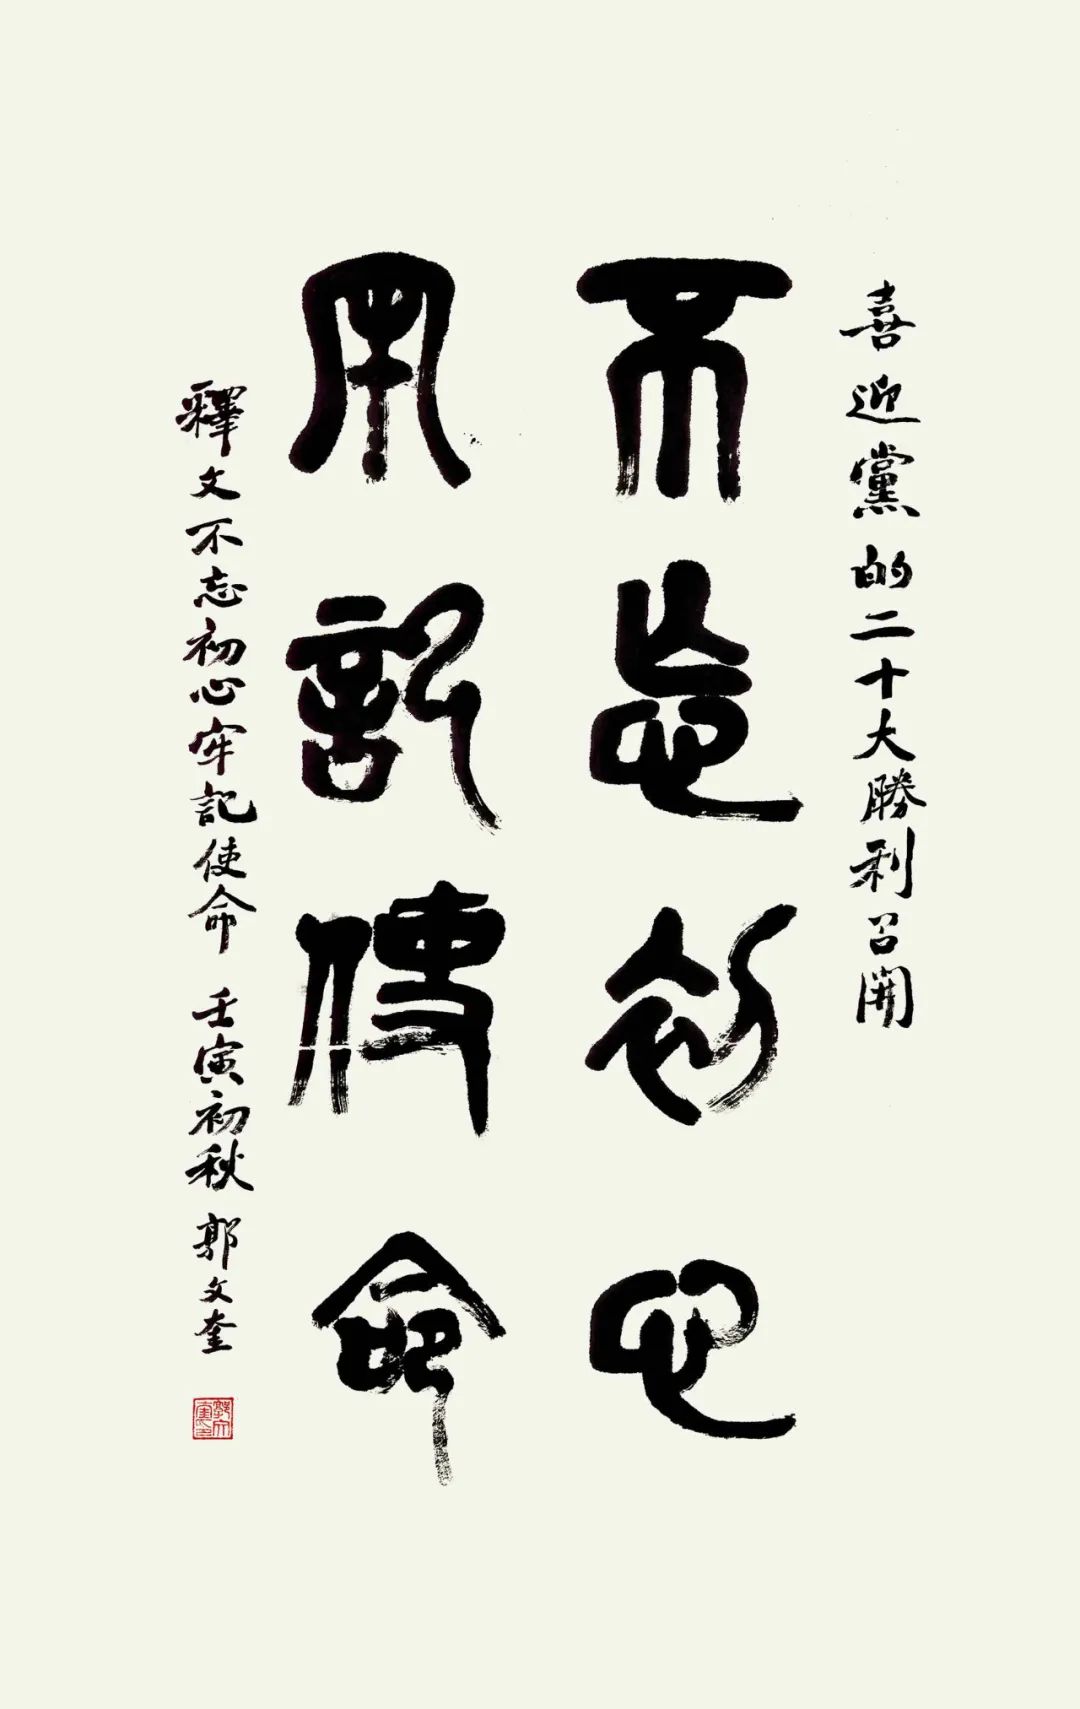 喜迎黨的二十大勝利召開
不忘初心
牢記使命
釋文不忘初心牢記使命 壬寅初秋 郭文奎